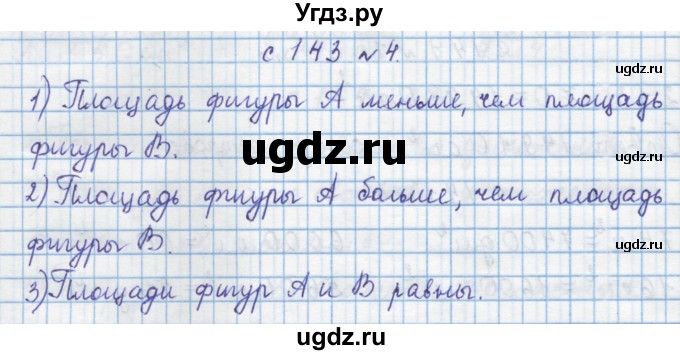 Угдз.ру
с 143 № 4.
1) Площадь фигуры А меньше, чем площадь
фигуры В.
ugdz.ru
ugdz.ru
ugdz.ru
2) Площадь фигуры А больше, чем площадь
фигуры В.
ugdz.ru
ugdz.ru
3) Площади фигур А и В равны.
ugdz.ru
ugdz.ru